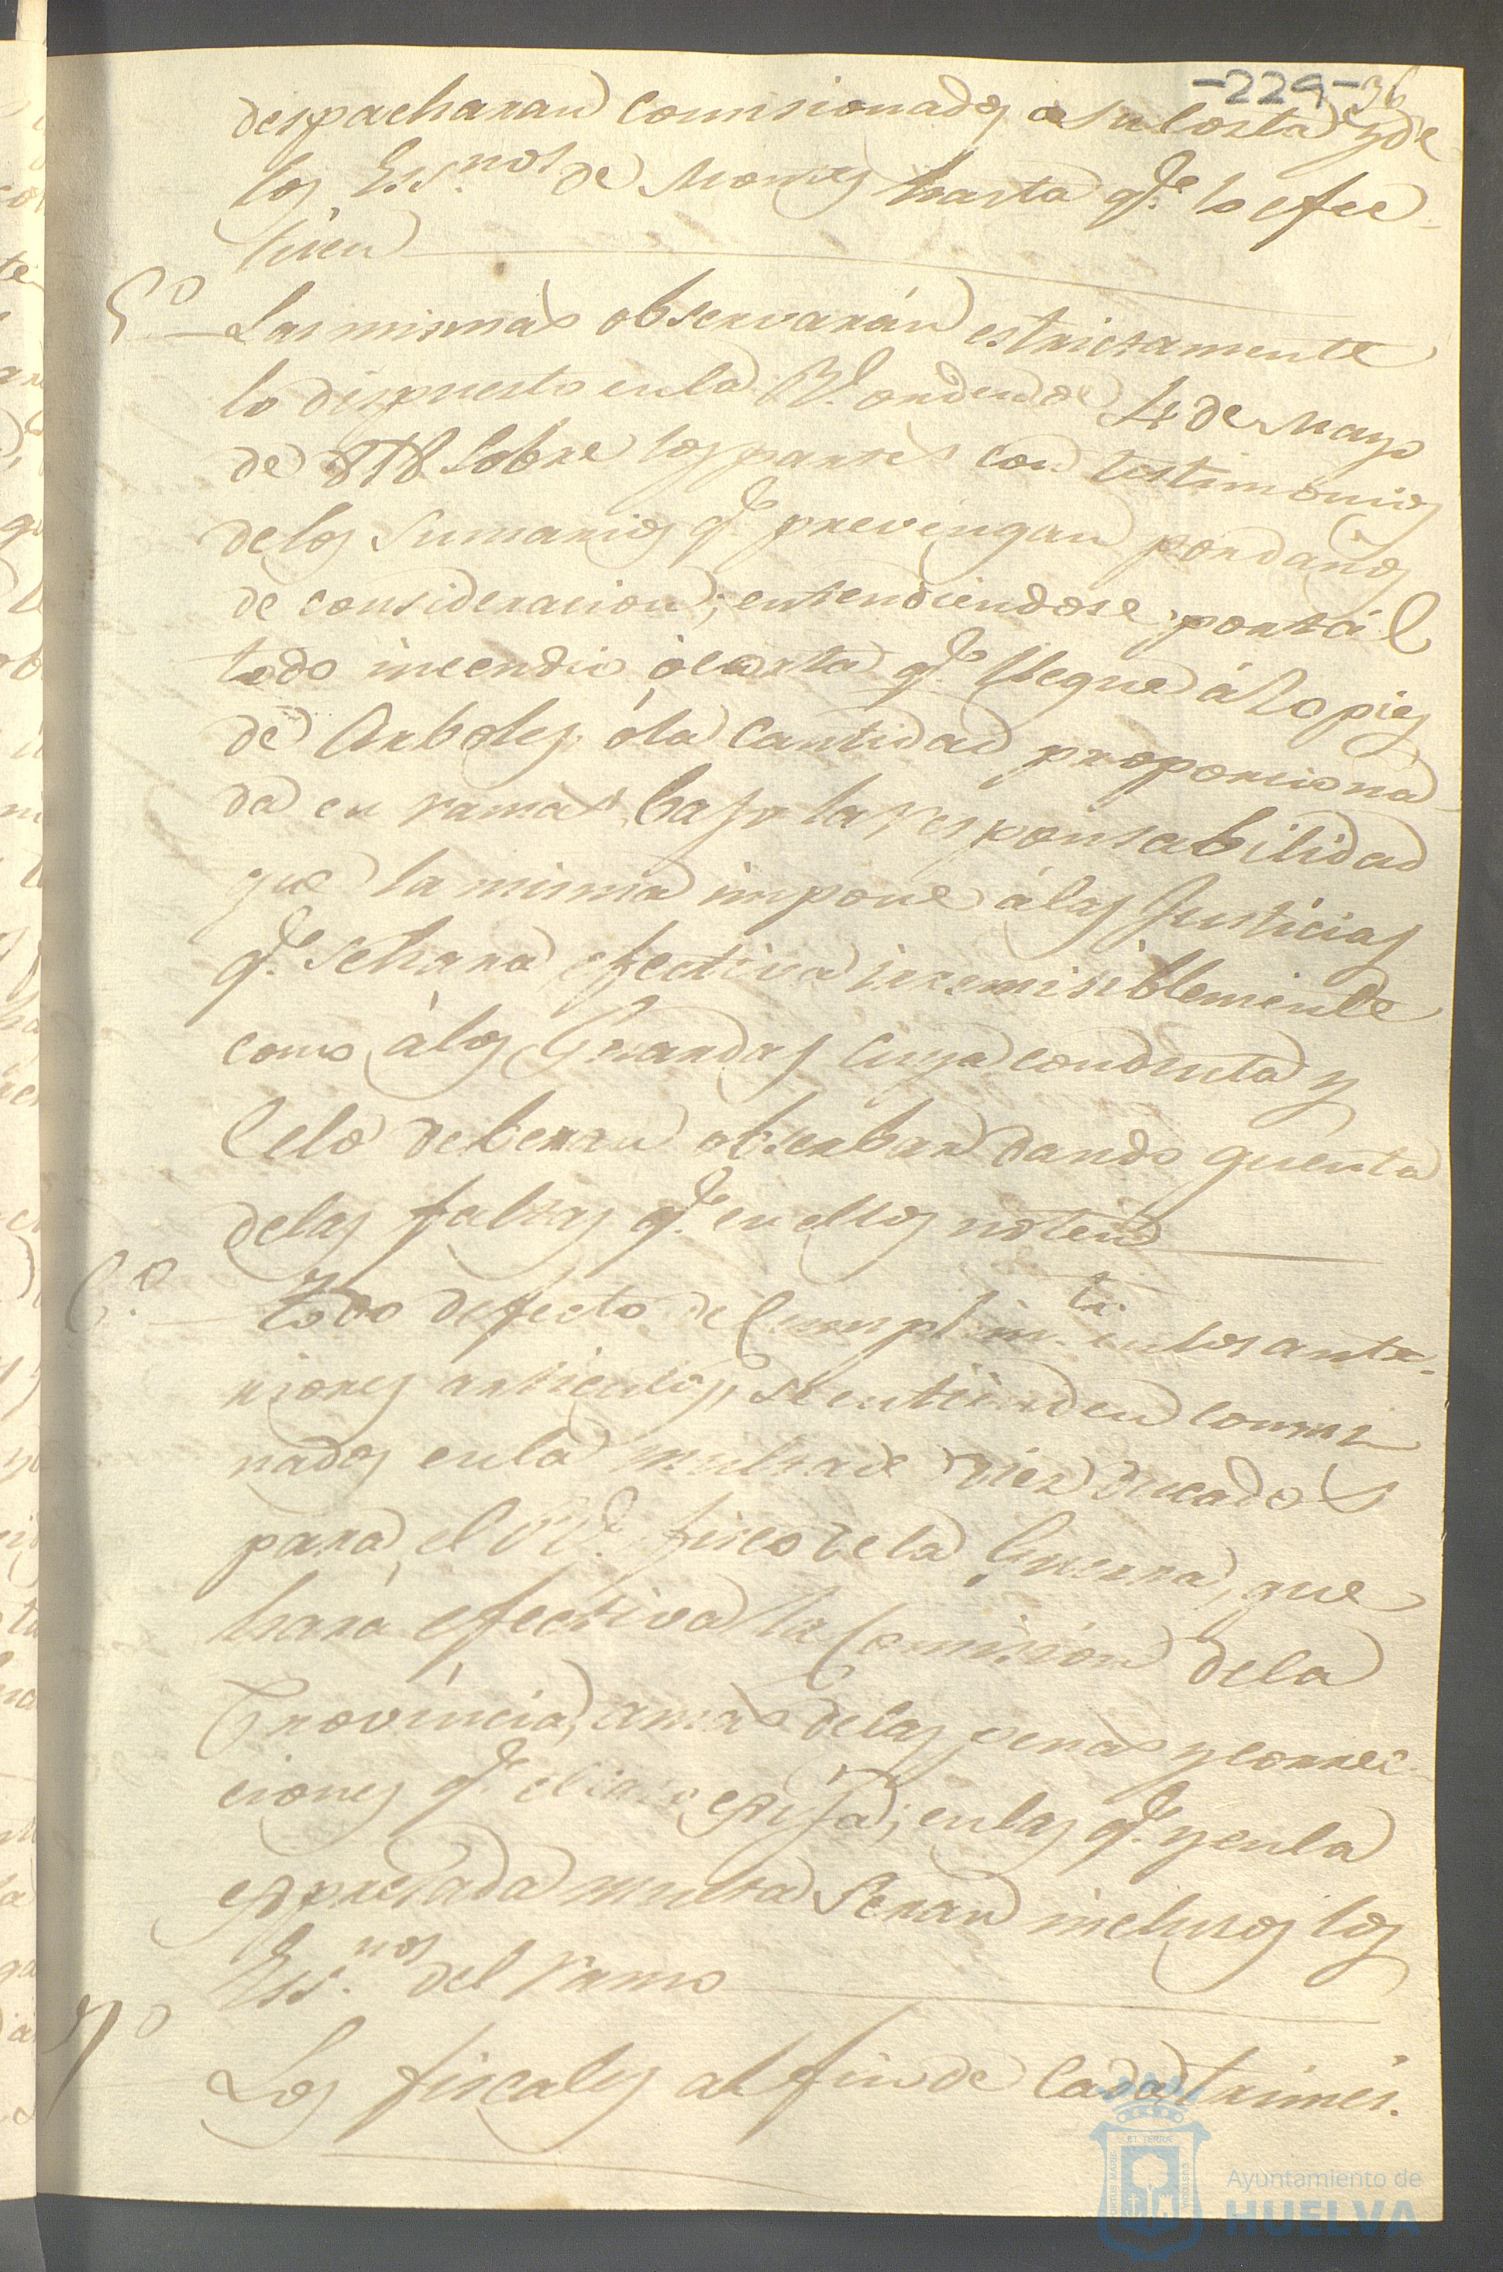 -229- 36
despacharan comisionados a su costa y de
los Ess.nos de Montes hasta q.e lo efec-
tuen
5.o Las mismas observarán estrictamente
lo dispuesto en la R.l orden de 14 de Mayo
de 818 sobre los partes con testimonios
de los Sumarios q.e prevengan por daños
de consideracion; entendiendose por tál
todo incendio ó corta q.e llegue á 20 pies
de Arboles, ó la cantidad proporciona-
da en ramas, bajo la responsabilidad
que la misma impone á las Justicias
q.e se hara efectiva irremisiblemente
como á los Guardas cuya conducta y
Celo deberan observar dando quenta
de las faltas q.e en ellos noten
6.o Todo defecto de Cumplim.to en los ante-
riores articulos, se entienden conmi
nados en la multa de diez ducados
para el R.l fisco de la Guerra, que
hara efectiva la Comision de la
Provincia, a mas de las penas y correc-
ciones q.e el caso exija; en las q.e y en la
expresada multa Seran inclusos los
Ess.nos del ramo
7.o Los fiscales al fin de cada trimes.
ET TERRAE
Ayuntamiento de
HUELVA